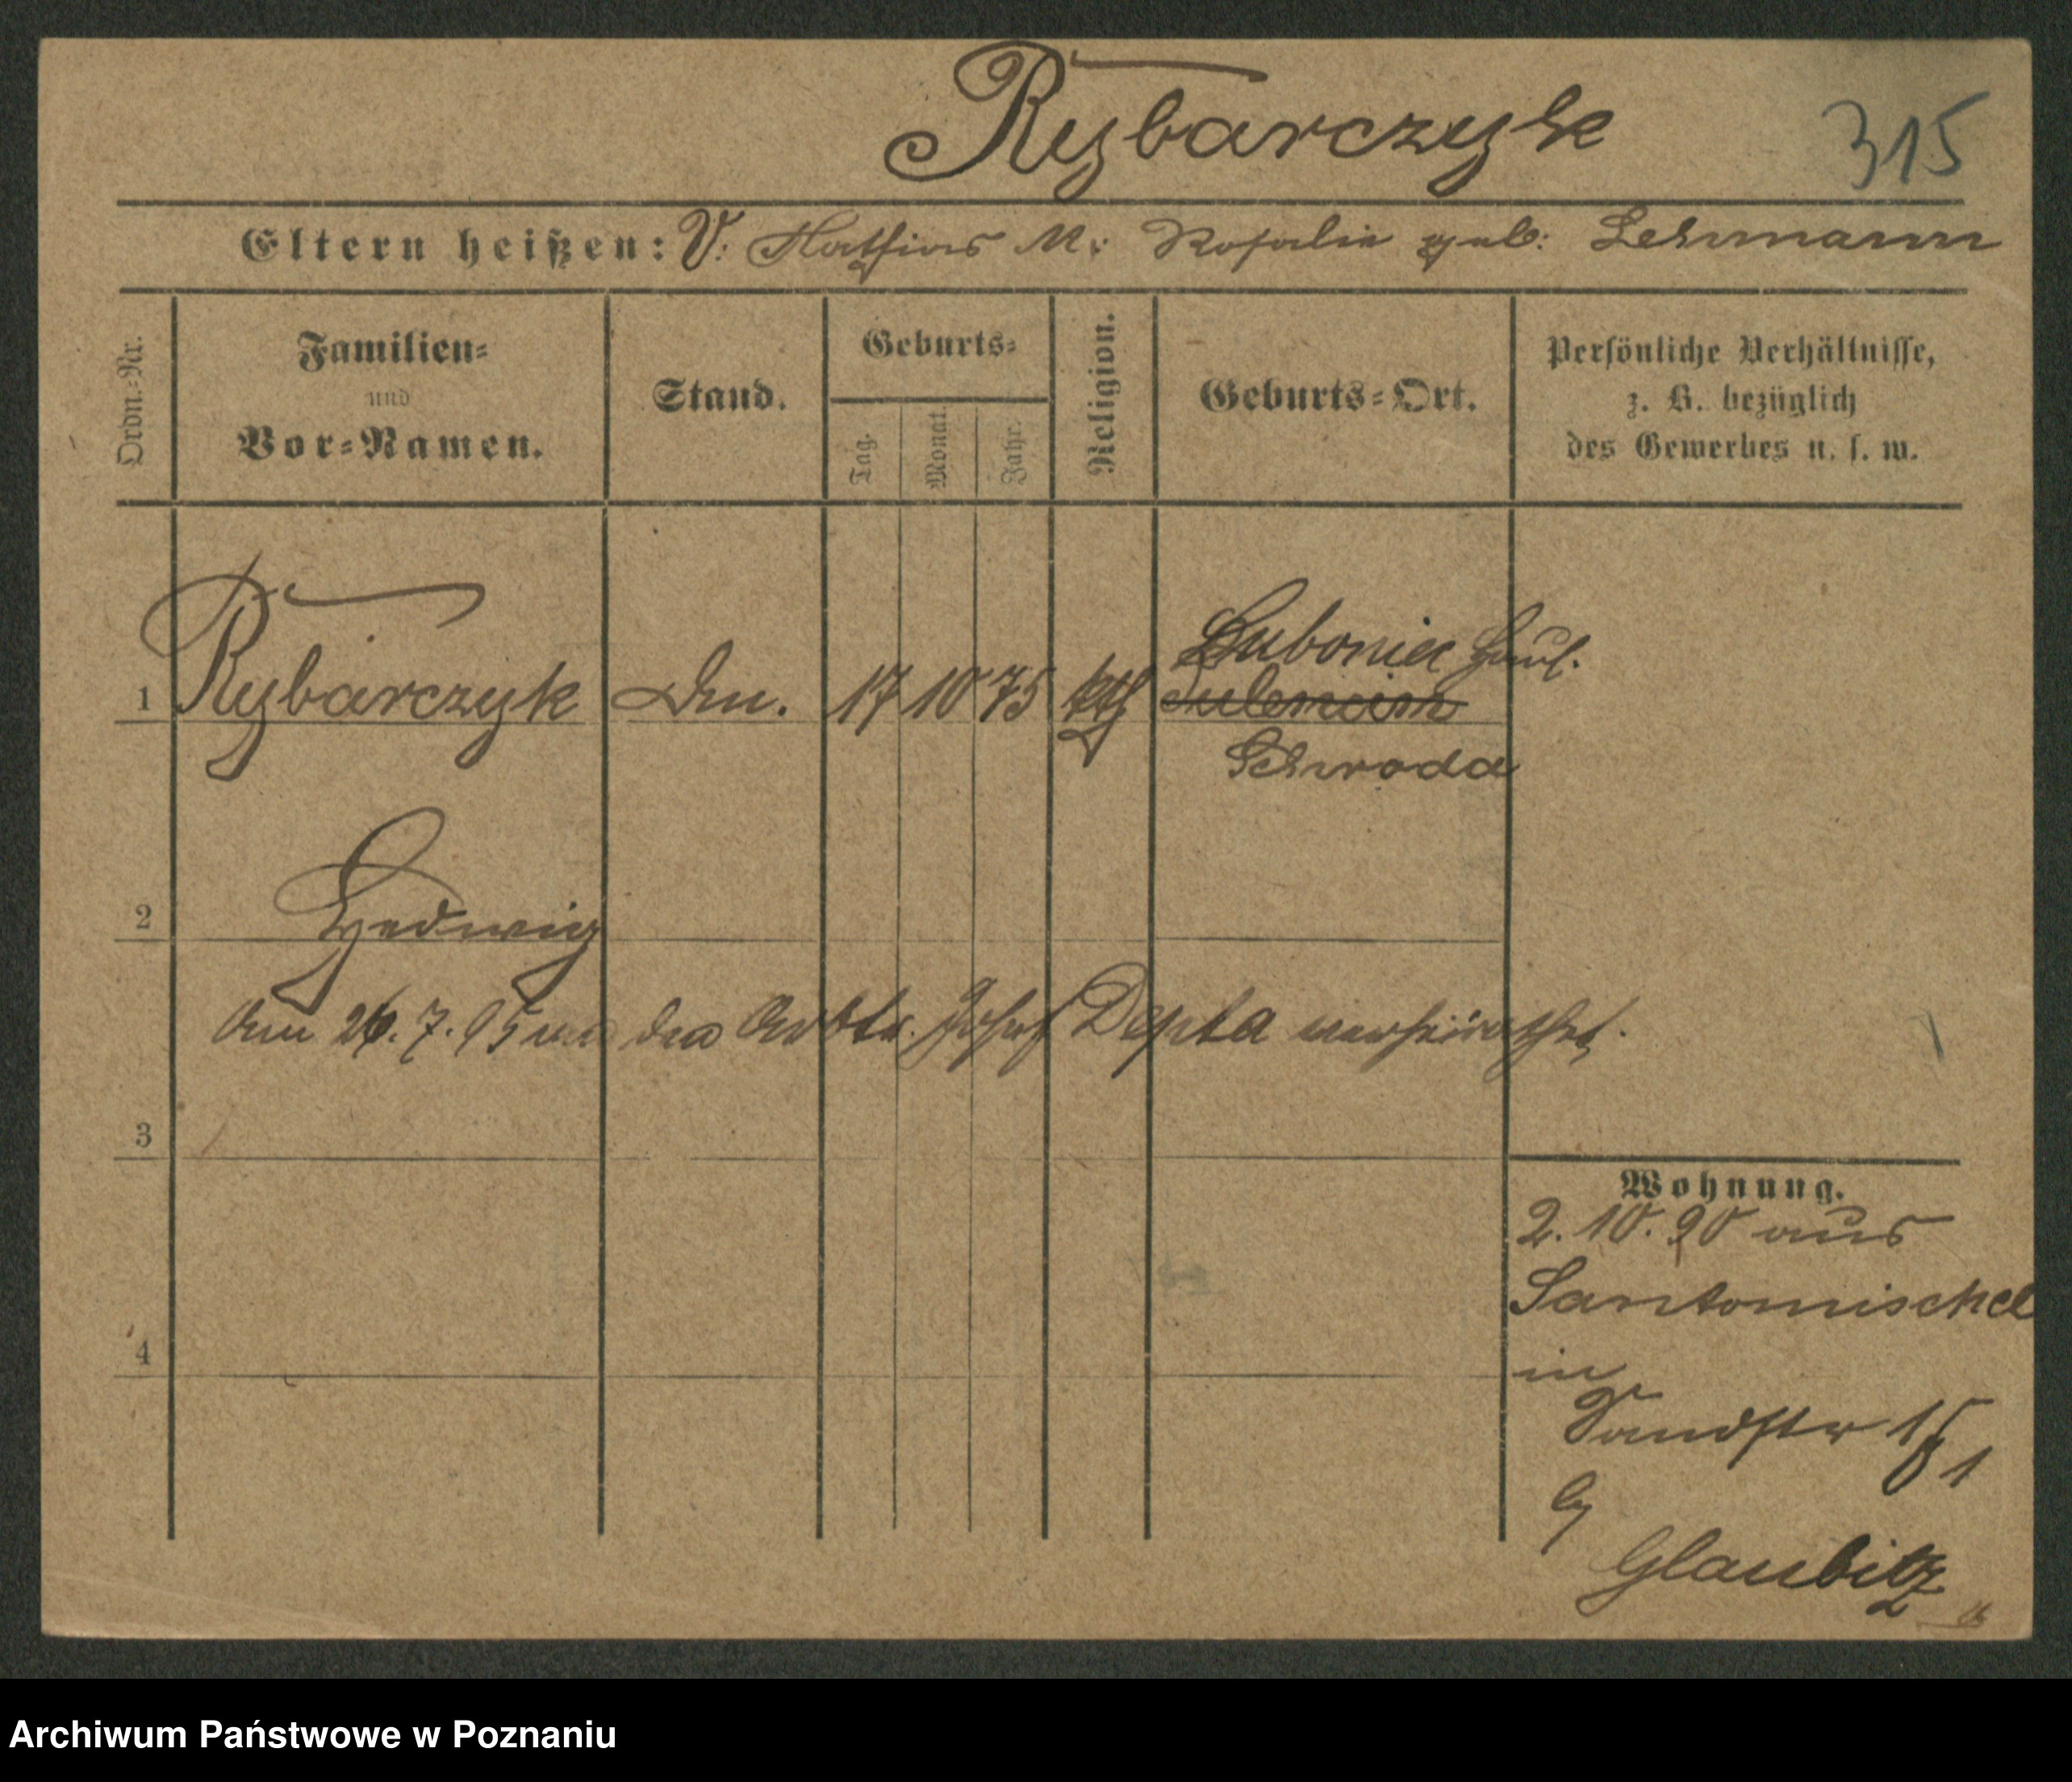 Rybarczyk
315
Eltern heißen: V: Mathias M: Rosalie geb: Lehmann
Ordn.=Nr.
Familien=
und
Vor=Namen.
Stand.
Geburts=
Tag.
Monat.
Jahr.
Religion.
Geburts=Ort.
Persönliche Verhältnisse,
z. B. bezüglich
des Gewerbes u. s. w.
1 Rybarczyk 17 10 75 kth
Schroda
2 Hedwig
Am 26. 7. 95 Josef Depta verheirathet.
3
4
Wohnung.
2. 10. 90 aus
Santomischel
in
Sandstr
Glaubitz
Archiwum Państwowe w Poznaniu